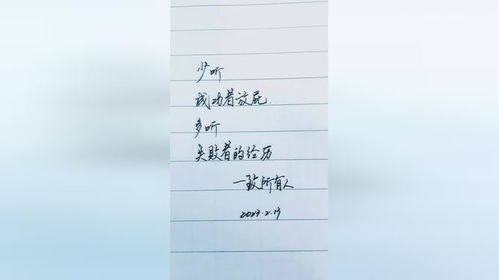 少听
成功者放屁
多听
失败者的经历
一致所有人
2023.2.17